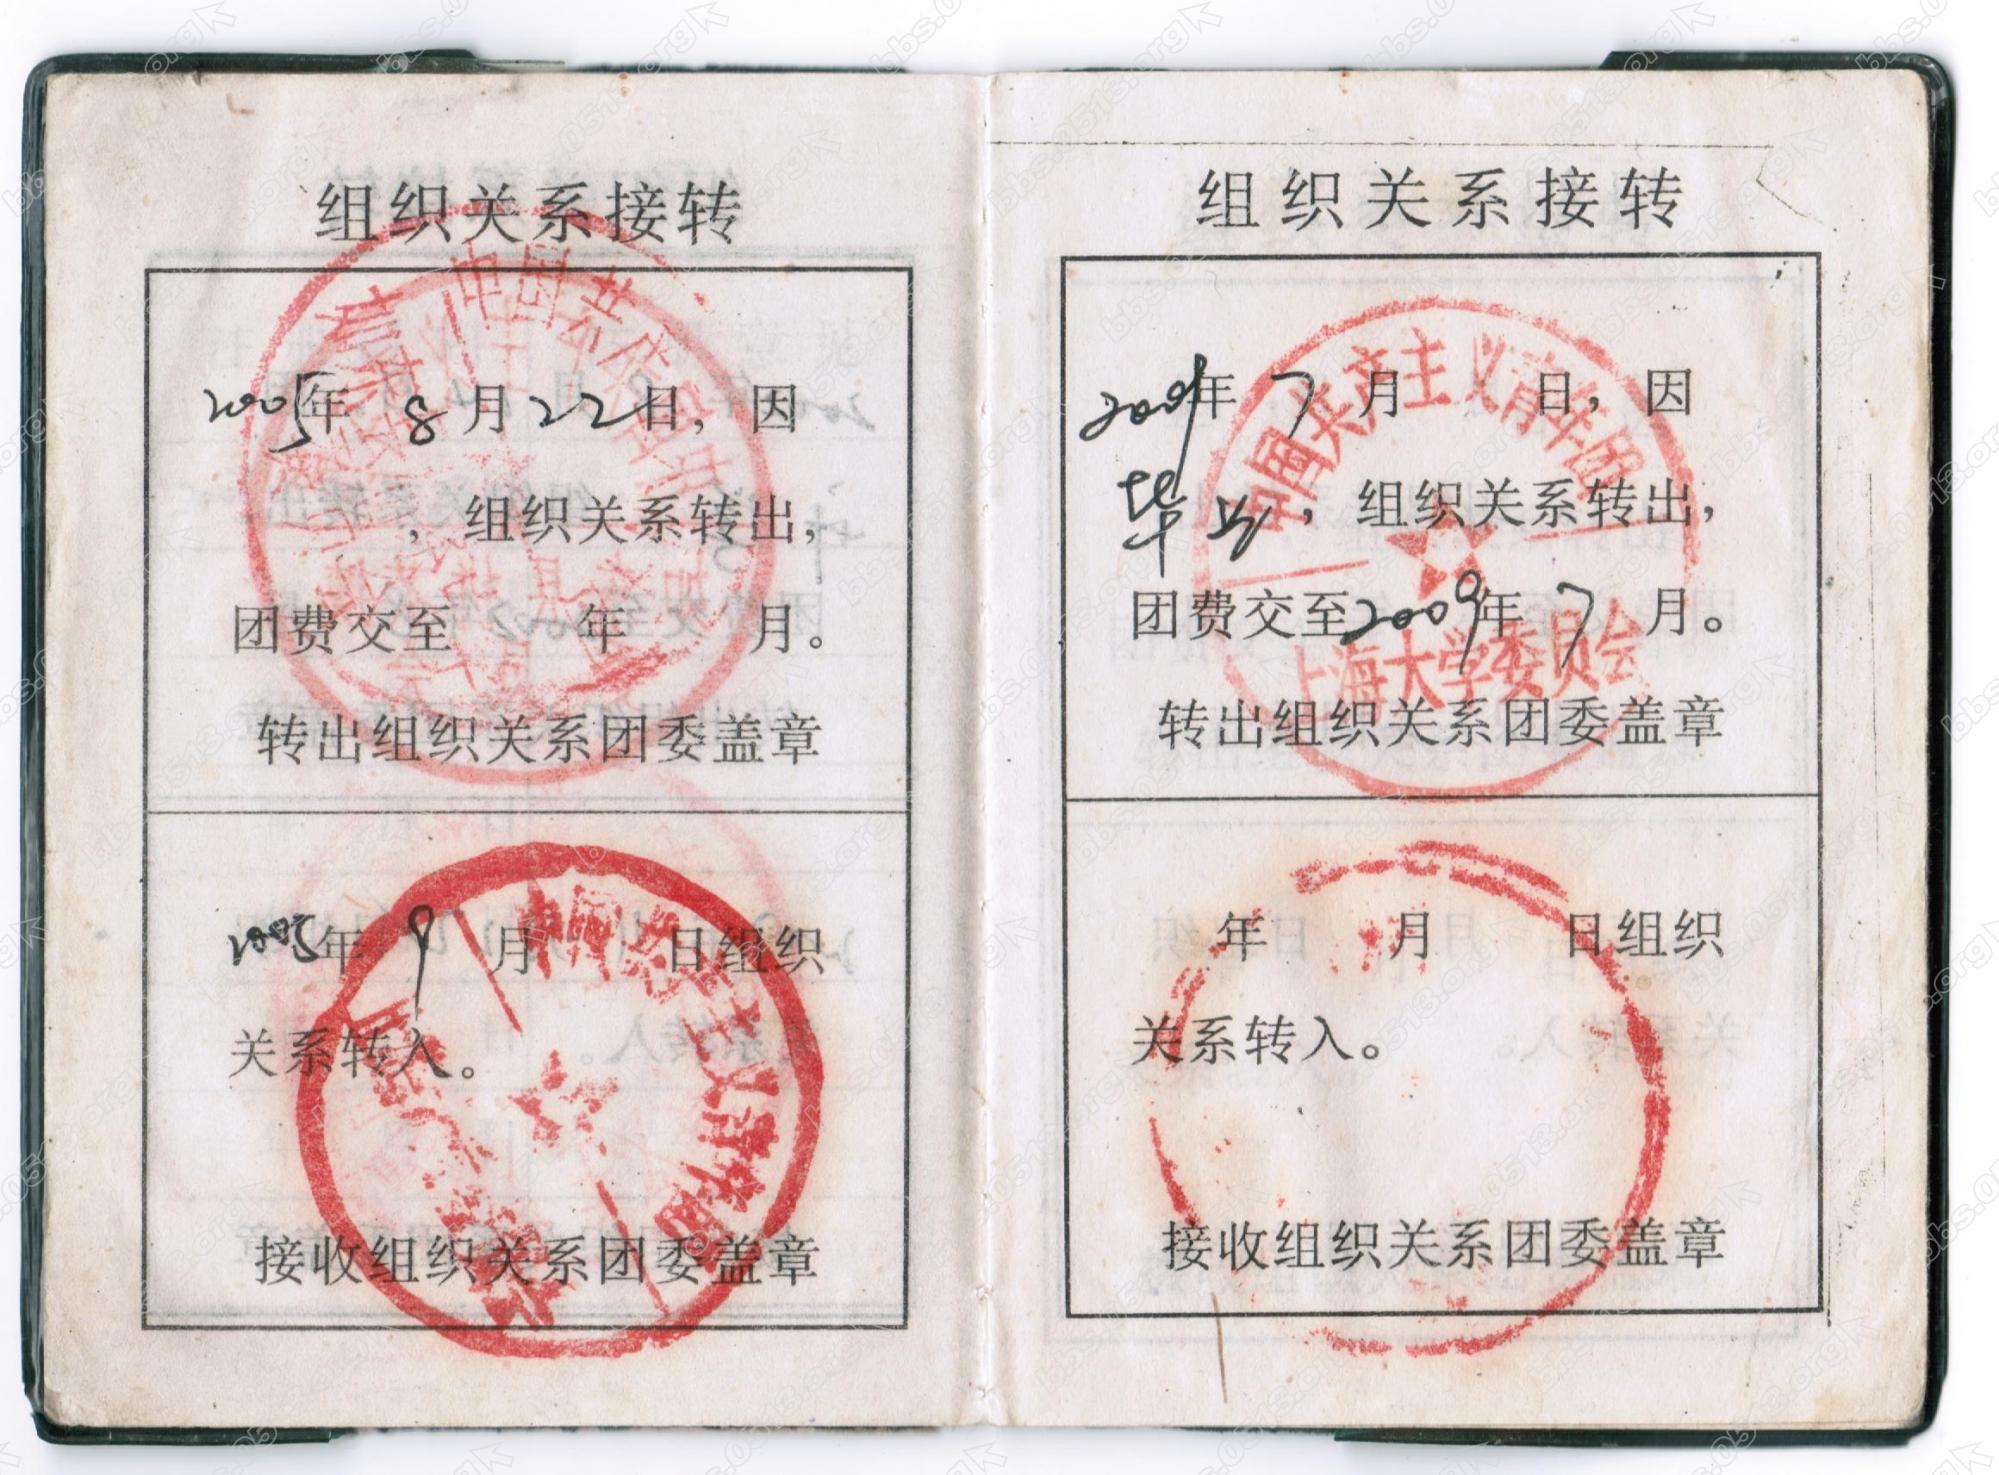 组织关系接转
2005年 8月22日，因
，组织关系转出，
团费交至 年 月。
转出组织关系团委盖章
2005年9月 日组织
关系转入。
接收组织关系团委盖章
组织关系接转
中国共产主义青年团
2009年7月 日，因
毕业，组织关系转出，
团费交至2009年7月。
上海大学委员会
转出组织关系团委盖章
年 月 日组织
关系转入。
接收组织关系团委盖章
bbs.0513.org